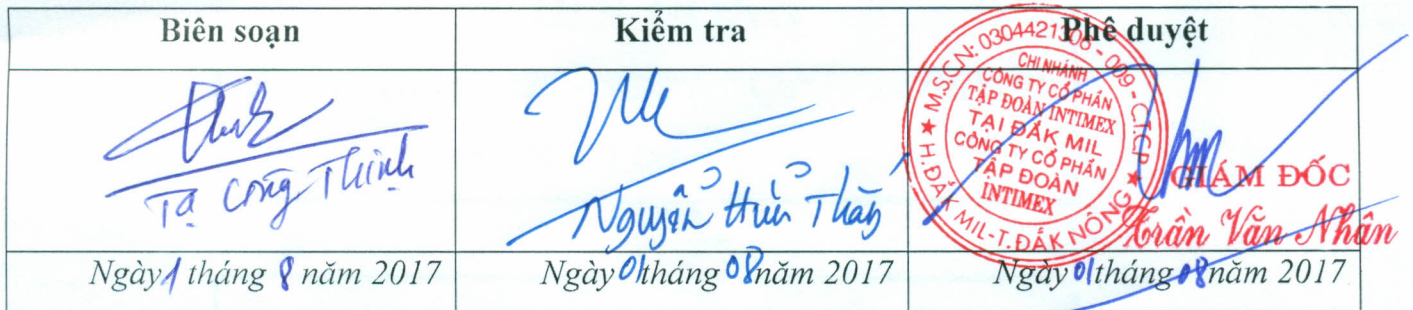 Biên soạn
Kiểm tra
Phê duyệt
Tạ Công Thịnh
Nguyễn Hữu Thắng
M.S.C.N: 0304421306 - 009 - C.T.C.P
CHI NHÁNH
CÔNG TY CỔ PHẦN
TẬP ĐOÀN INTIMEX
TẠI ĐẮK MIL
CÔNG TY CỔ PHẦN
TẬP ĐOÀN
INTIMEX
H.ĐẮK MIL-T.ĐẮK NÔNG
GIÁM ĐỐC
Trần Văn Nhân
Ngày 1 tháng 8 năm 2017
Ngày 01 tháng 08 năm 2017
Ngày 01 tháng 08 năm 2017